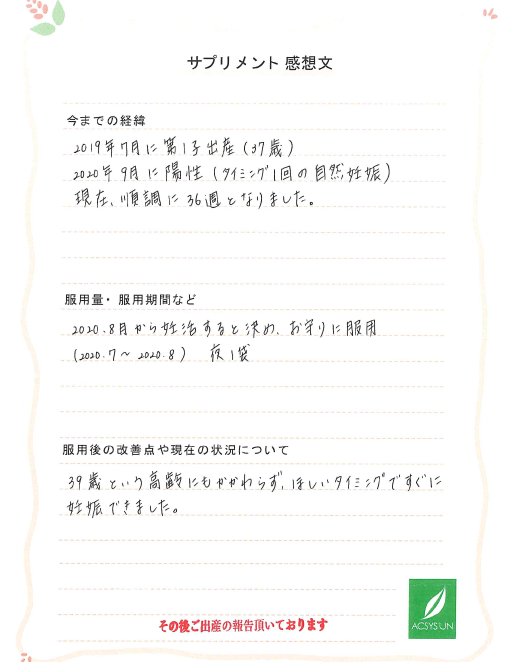 サプリメント 感想文
今までの経緯
2019年7月に第1子出産(37歳)
2020年9月に陽性(タイミング1回の自然妊娠)
現在、順調に36週となりました。
服用量・服用期間など
2020.8月から妊活すると決め、お守りに服用
(2020.7〜2020.8) 夜1袋
服用後の改善点や現在の状況について
39歳という高齢にもかかわらず、ほしいタイミングですぐに
妊娠できました。
その後ご出産の報告頂いております
ACSYSUN